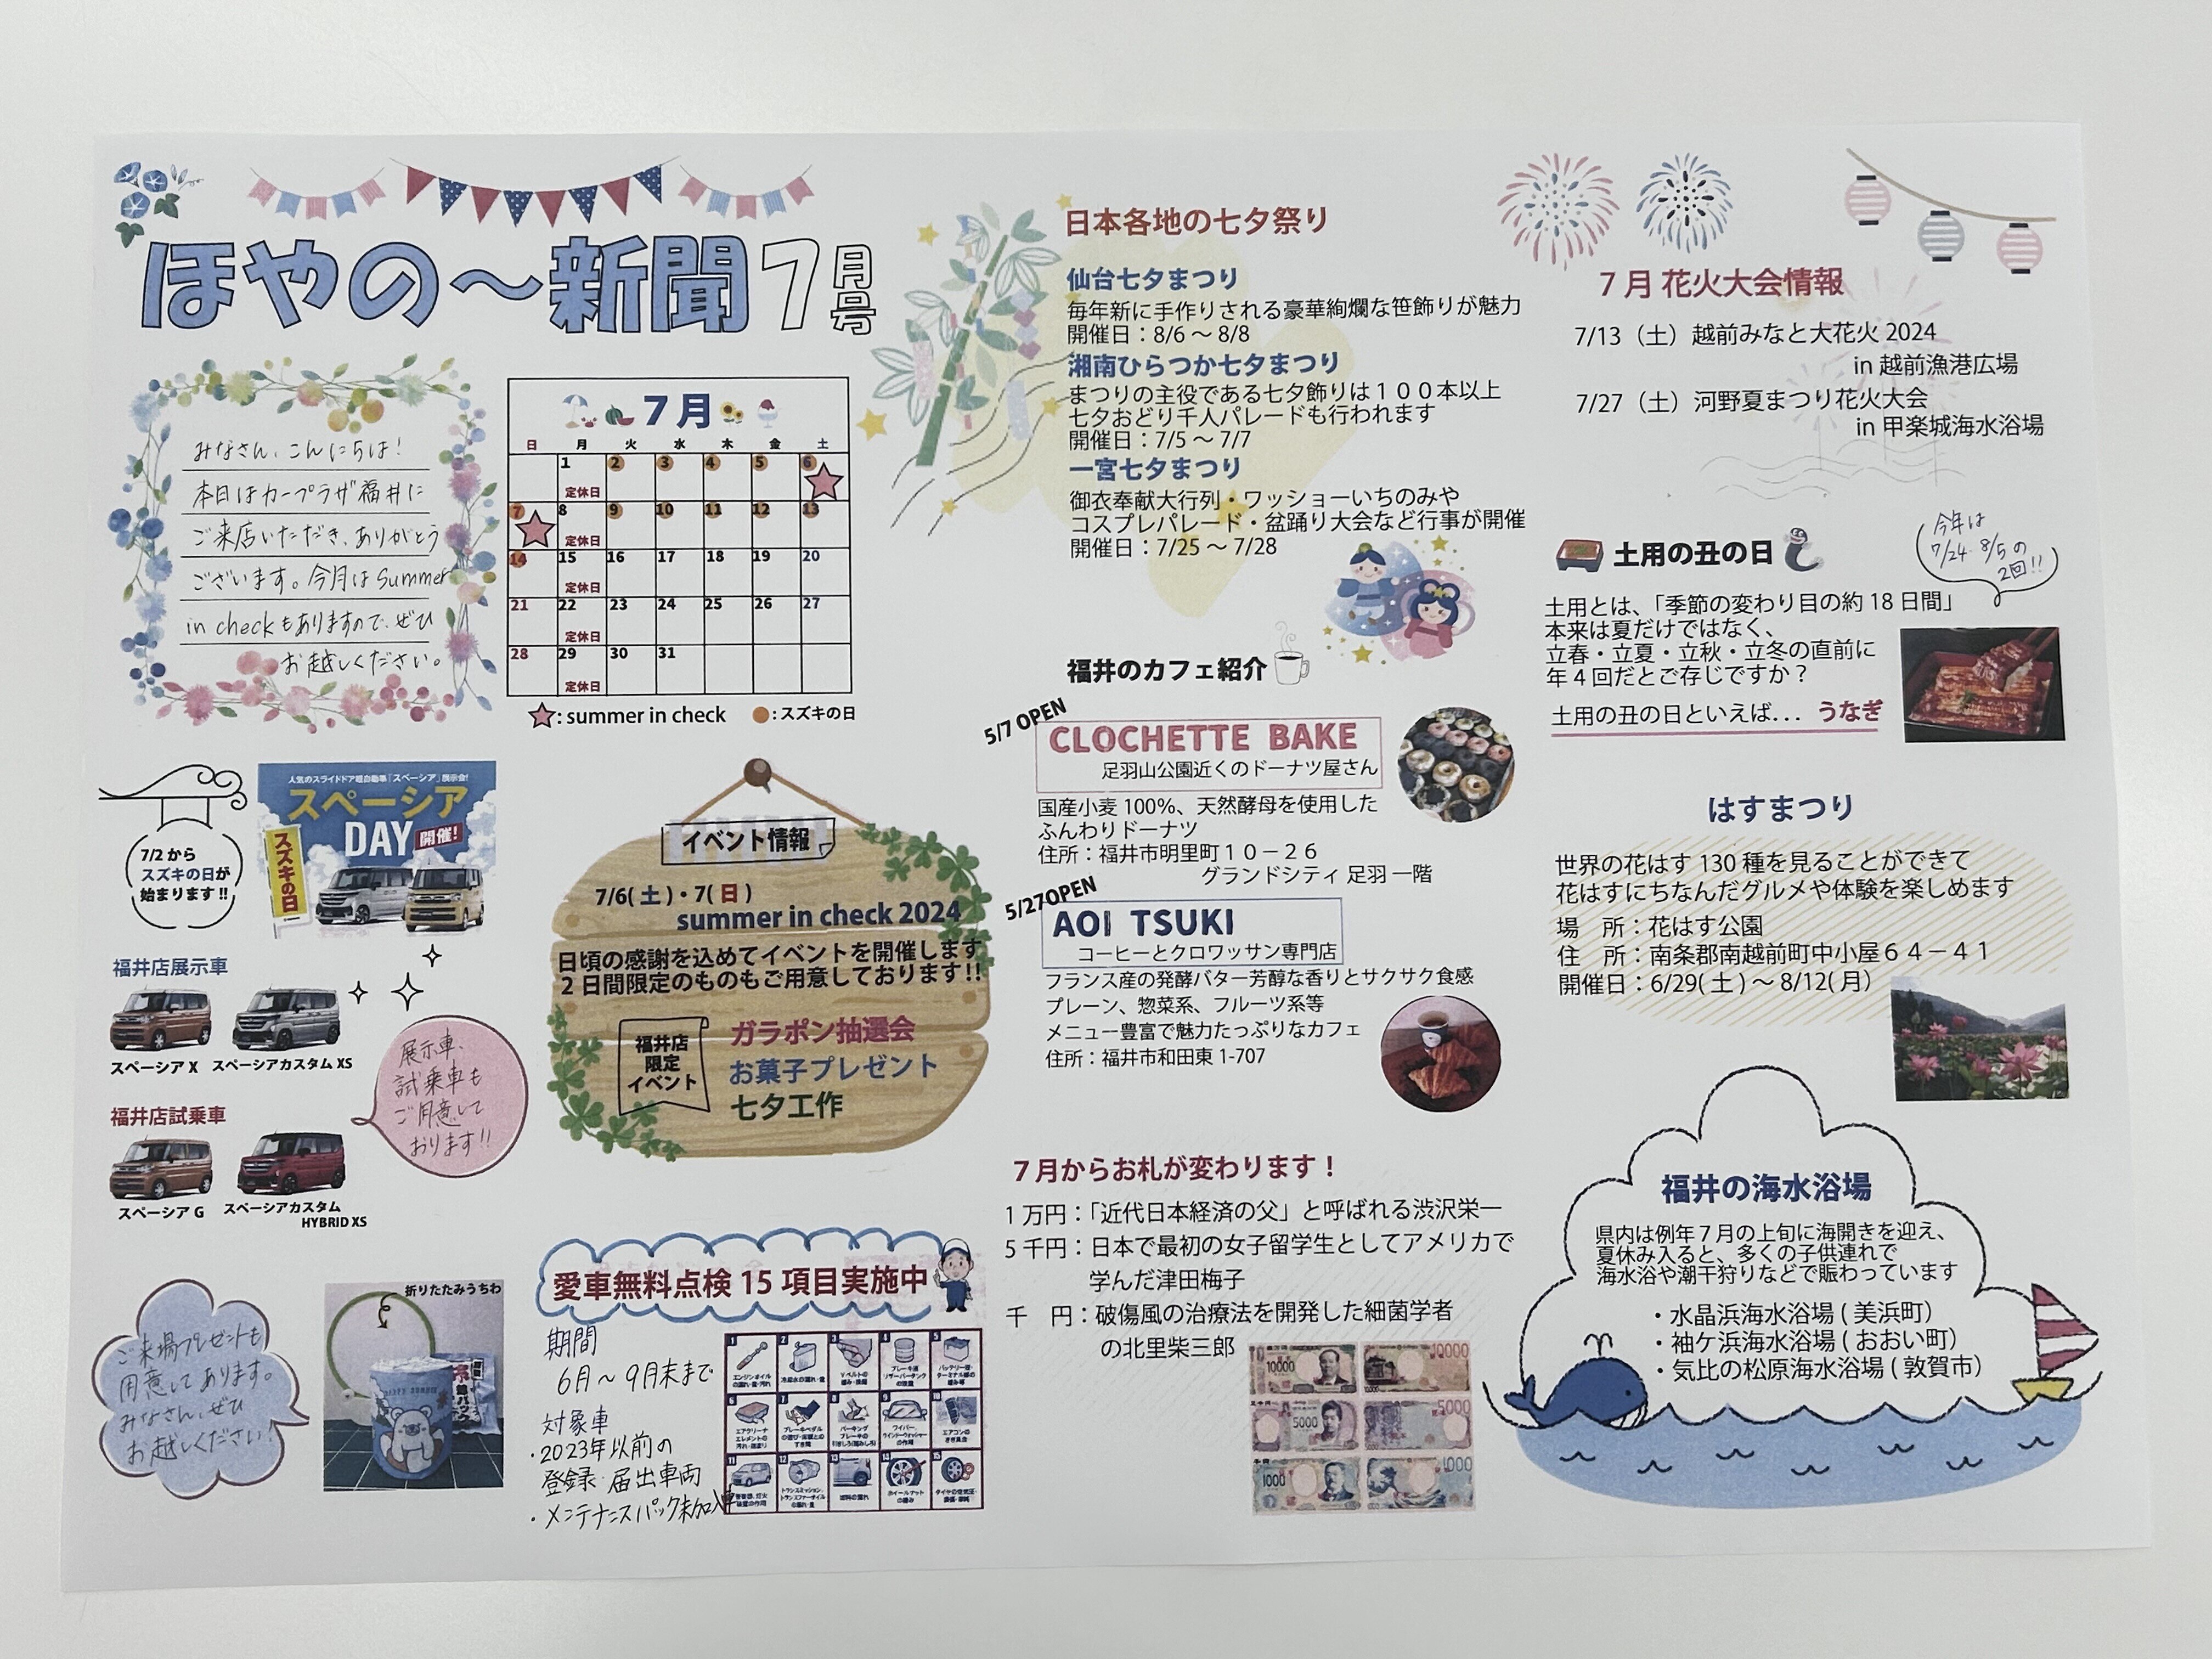 ほやの～新聞7月号
みなさん、こんにちは!
本日はカープラザ福井に
ご来店いただき、ありがとう
ございます。今月はSummer
in checkもありますので、ぜひ
お越しください。
7月
日 月 火 水 木 金 土
1 2 3 4 5 6
定休日
7 8 9 10 11 12 13
定休日
14 15 16 17 18 19 20
定休日
21 22 23 24 25 26 27
定休日
28 29 30 31
定休日
: summer in check : スズキの日
7/2 から
スズキの日が
始まります!!
人気のスライドドア軽自動車「スペーシア」展示会!
スペーシア
DAY 開催!
スズキの日
福井店展示車
スペーシア X スペーシアカスタム XS
福井店試乗車
スペーシア G スペーシアカスタム
HYBRID XS
展示車、
試乗車も
ご用意して
おります!!
イベント情報
7/6(土)・7(日)
summer in check 2024
日頃の感謝を込めてイベントを開催します
2日間限定のものもご用意しております!!
福井店
限定
イベント
ガラポン抽選会
お菓子プレゼント
七夕工作
ご来場プレゼントも
用意してあります。
みなさん、ぜひ
お越しください!
折りたたみうちわ
愛車無料点検 15 項目実施中
期間
6月～9月末まで
対象車
・2023年以前の
登録・届出車両
・メンテナンスパック未加入車
日本各地の七夕祭り
仙台七夕まつり
毎年新に手作りされる豪華絢爛な笹飾りが魅力
開催日：8/6 ～ 8/8
湘南ひらつか七夕まつり
まつりの主役である七夕飾りは１００本以上
七夕おどり千人パレードも行われます
開催日：7/5 ～ 7/7
一宮七夕まつり
御衣奉献大行列・ワッショーいちのみや
コスプレパレード・盆踊り大会など行事が開催
開催日：7/25 ～ 7/28
福井のカフェ紹介
5/7 OPEN
CLOCHETTE BAKE
足羽山公園近くのドーナツ屋さん
国産小麦 100%、天然酵母を使用した
ふんわりドーナツ
住所：福井市明里町１０－２６
グランドシティ 足羽 一階
5/27OPEN
AOI TSUKI
コーヒーとクロワッサン専門店
フランス産の発酵バター芳醇な香りとサクサク食感
プレーン、惣菜系、フルーツ系等
メニュー豊富で魅力たっぷりなカフェ
住所：福井市和田東 1-707
7月からお札が変わります！
1 万円：「近代日本経済の父」と呼ばれる渋沢栄一
5 千円：日本で最初の女子留学生としてアメリカで
学んだ津田梅子
千　円：破傷風の治療法を開発した細菌学者
の北里柴三郎
10000 10000
5000 5000
1000 1000
7 月 花火大会情報
7/13（土）越前みなと大花火 2024
in 越前漁港広場
7/27（土）河野夏まつり花火大会
in 甲楽城海水浴場
土用の丑の日
今年は
7/24 8/5の
2回!!
土用とは、「季節の変わり目の約 18 日間」
本来は夏だけではなく、
立春・立夏・立秋・立冬の直前に
年 4 回だとご存じですか？
土用の丑の日といえば... うなぎ
はすまつり
世界の花はす 130 種を見ることができて
花はすにちなんだグルメや体験を楽しめます
場　所：花はす公園
住　所：南条郡南越前町中小屋６４－４１
開催日：6/29(土)～ 8/12(月)
福井の海水浴場
県内は例年 7 月の上旬に海開きを迎え、
夏休み入ると、多くの子供連れで
海水浴や潮干狩りなどで賑わっています
・水晶浜海水浴場 ( 美浜町)
・袖ケ浜海水浴場 ( おおい町)
・気比の松原海水浴場 ( 敦賀市)